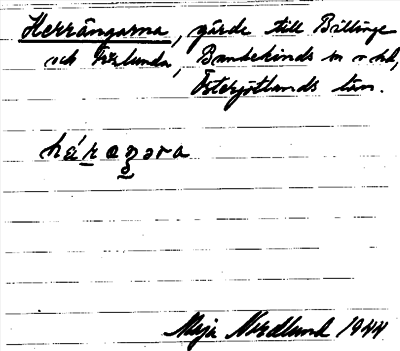 Herrängarna, gärde till Billinge
och Förlunda, Bankekinds sn o hd,
Östergötlands län.
Maja Nordlund 1944